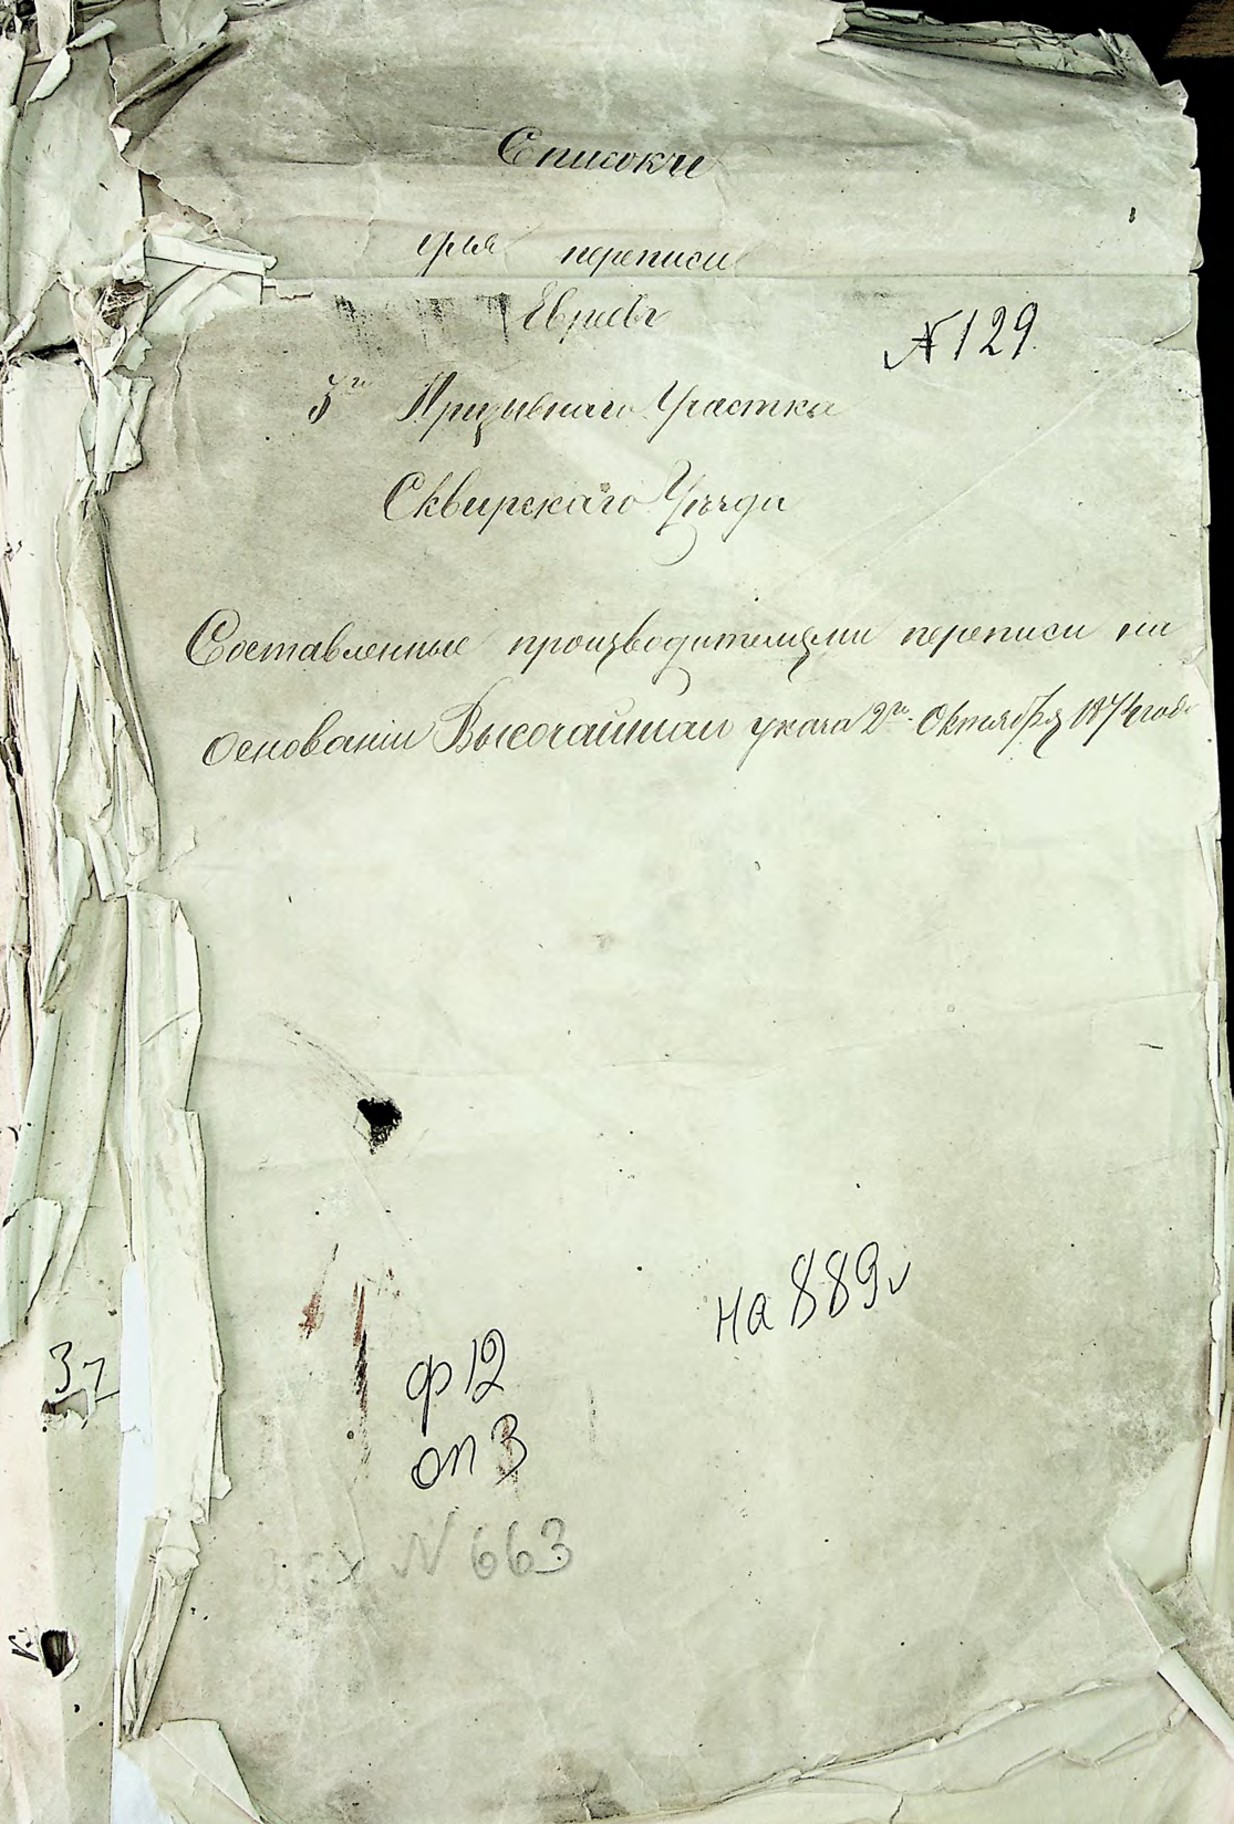 Списокъ
для переписи
Евреевъ
№ 129
3го Призывнаго Участка
Сквирскаго Уѣзда
Составленные производителями переписи на
основаніи Высочайшаго указа 2го Октября 1874 года
на 889 л
ф 12
оп 3
N 663
37